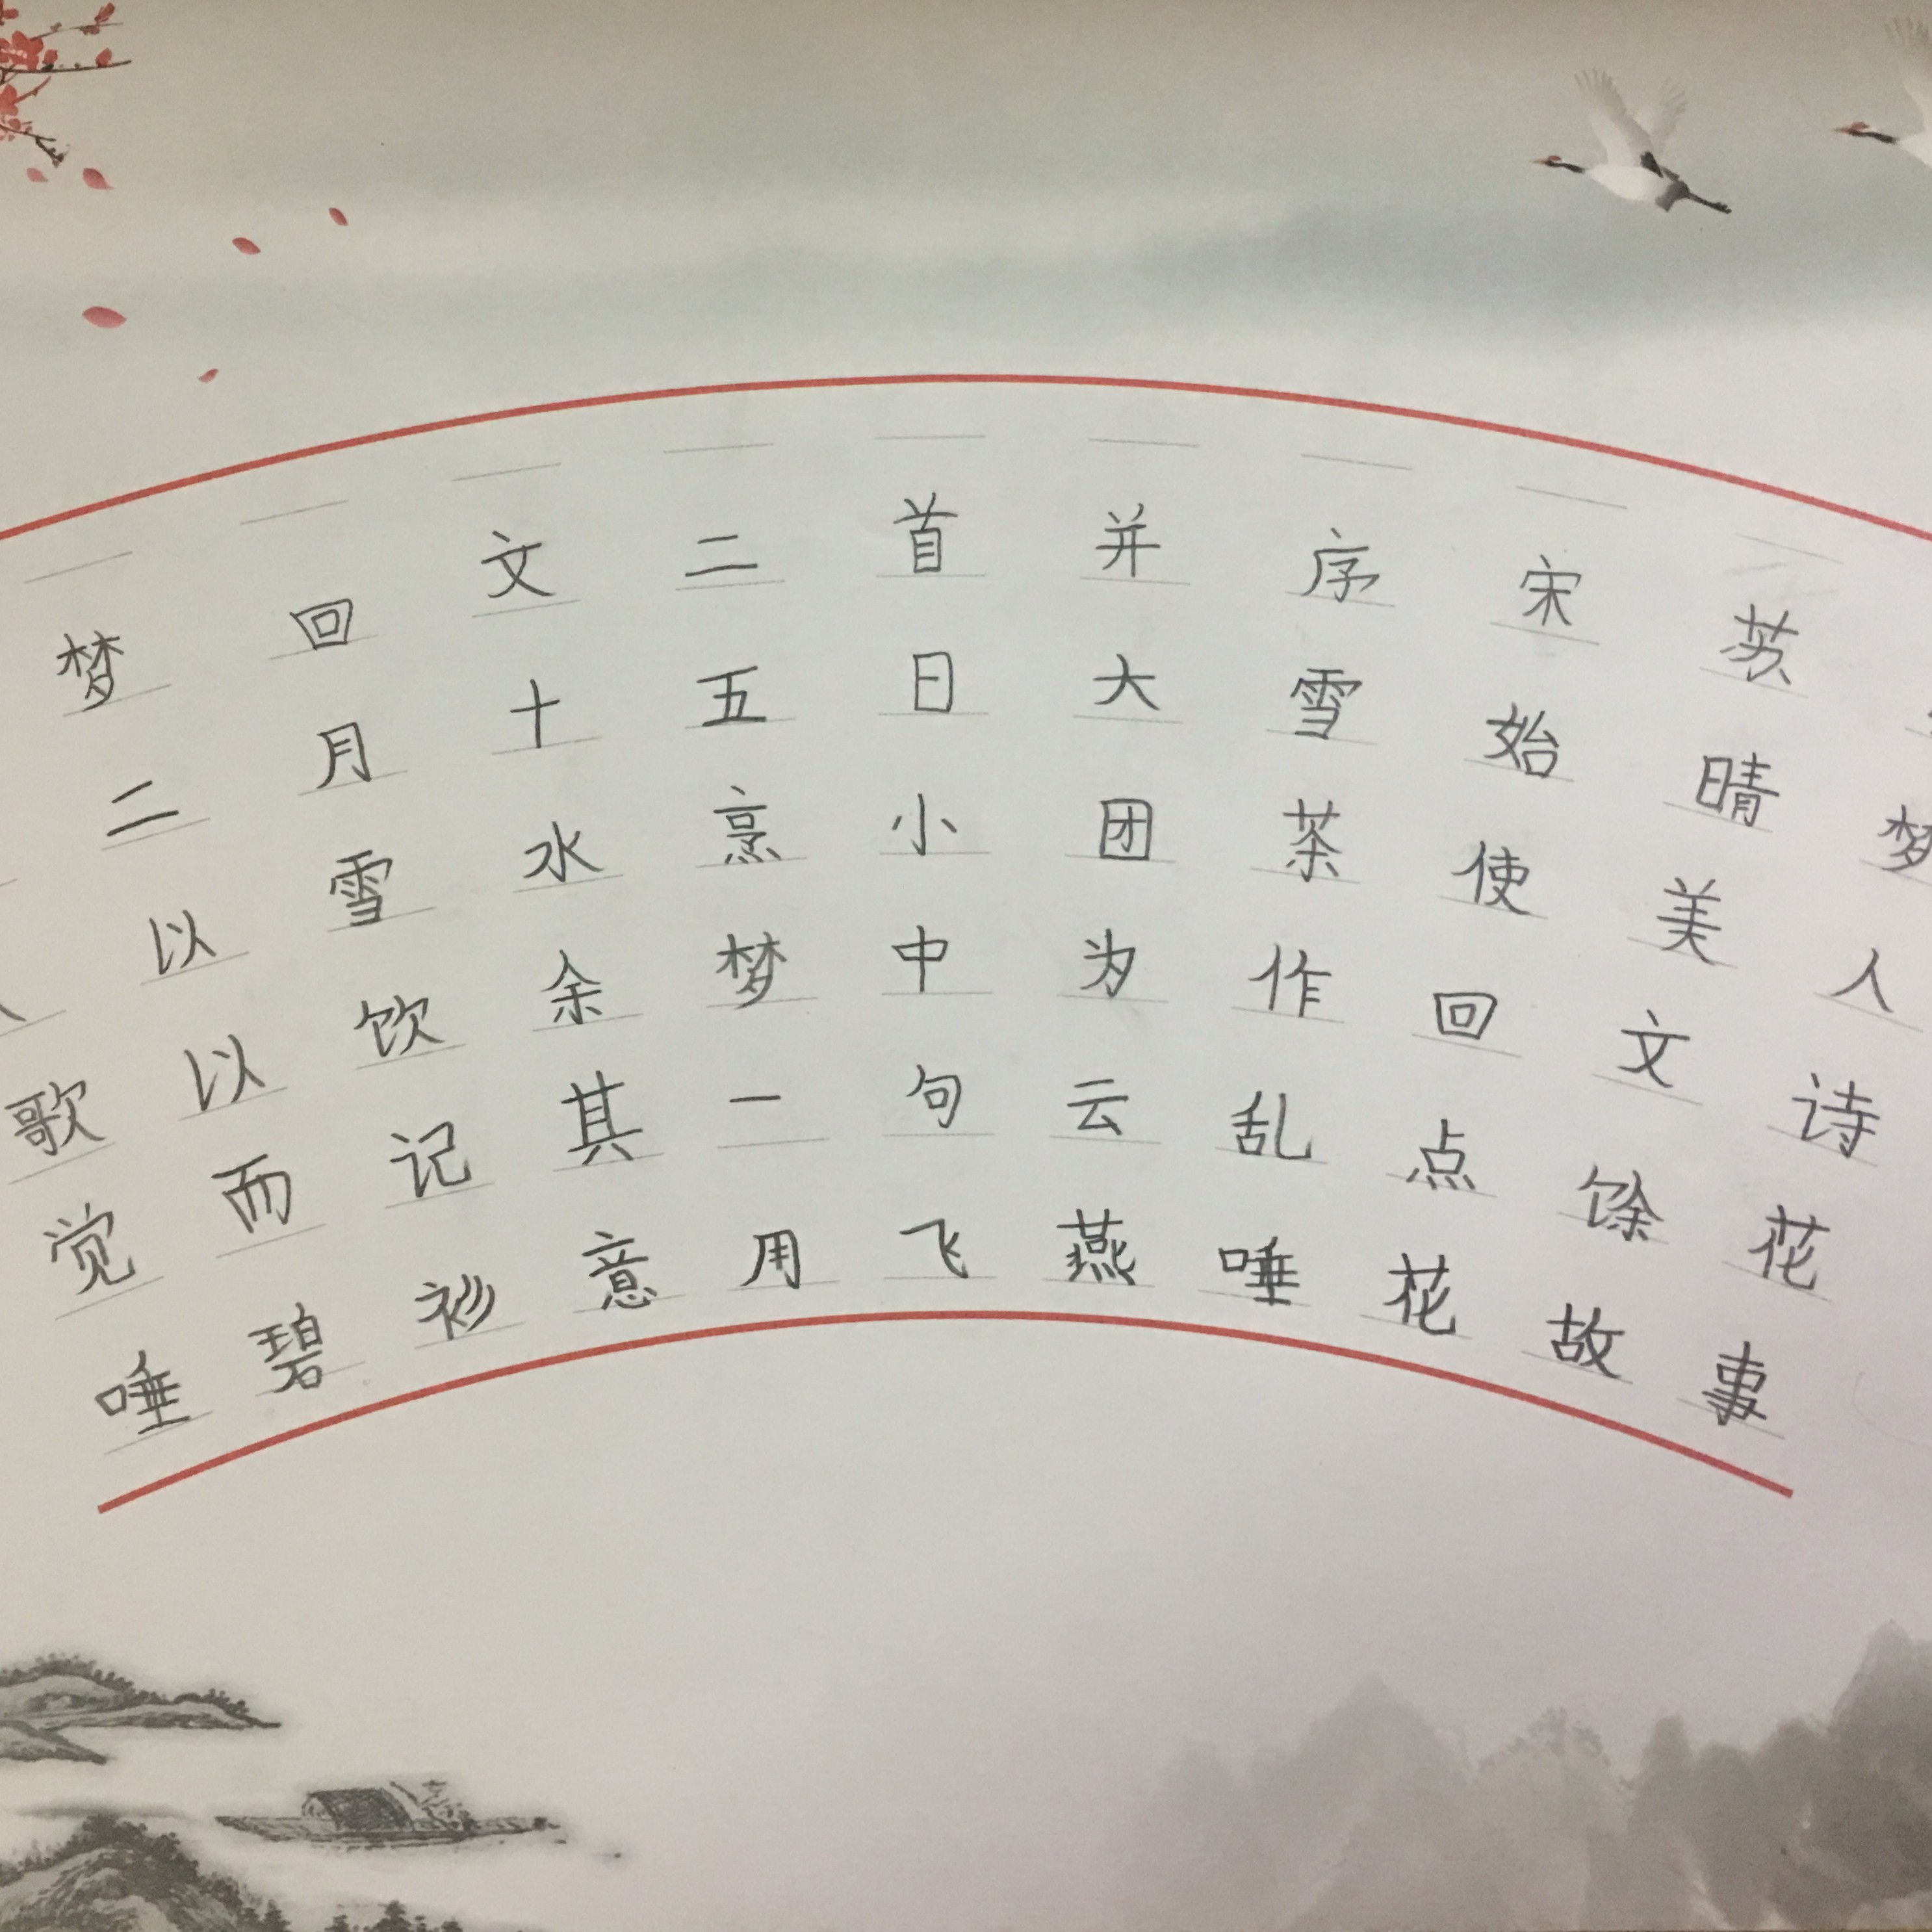 梦回文二首并序宋苏
二月十五日大雪始晴梦
以雪水烹小团茶使美人
歌以饮余梦中为作回文诗
觉而记其一句云乱点馀花
唾碧衫意用飞燕唾花故事